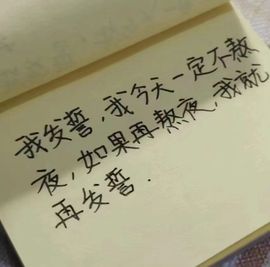 我发誓，我今天一定不熬
夜，如果再熬夜，我就
再发誓．